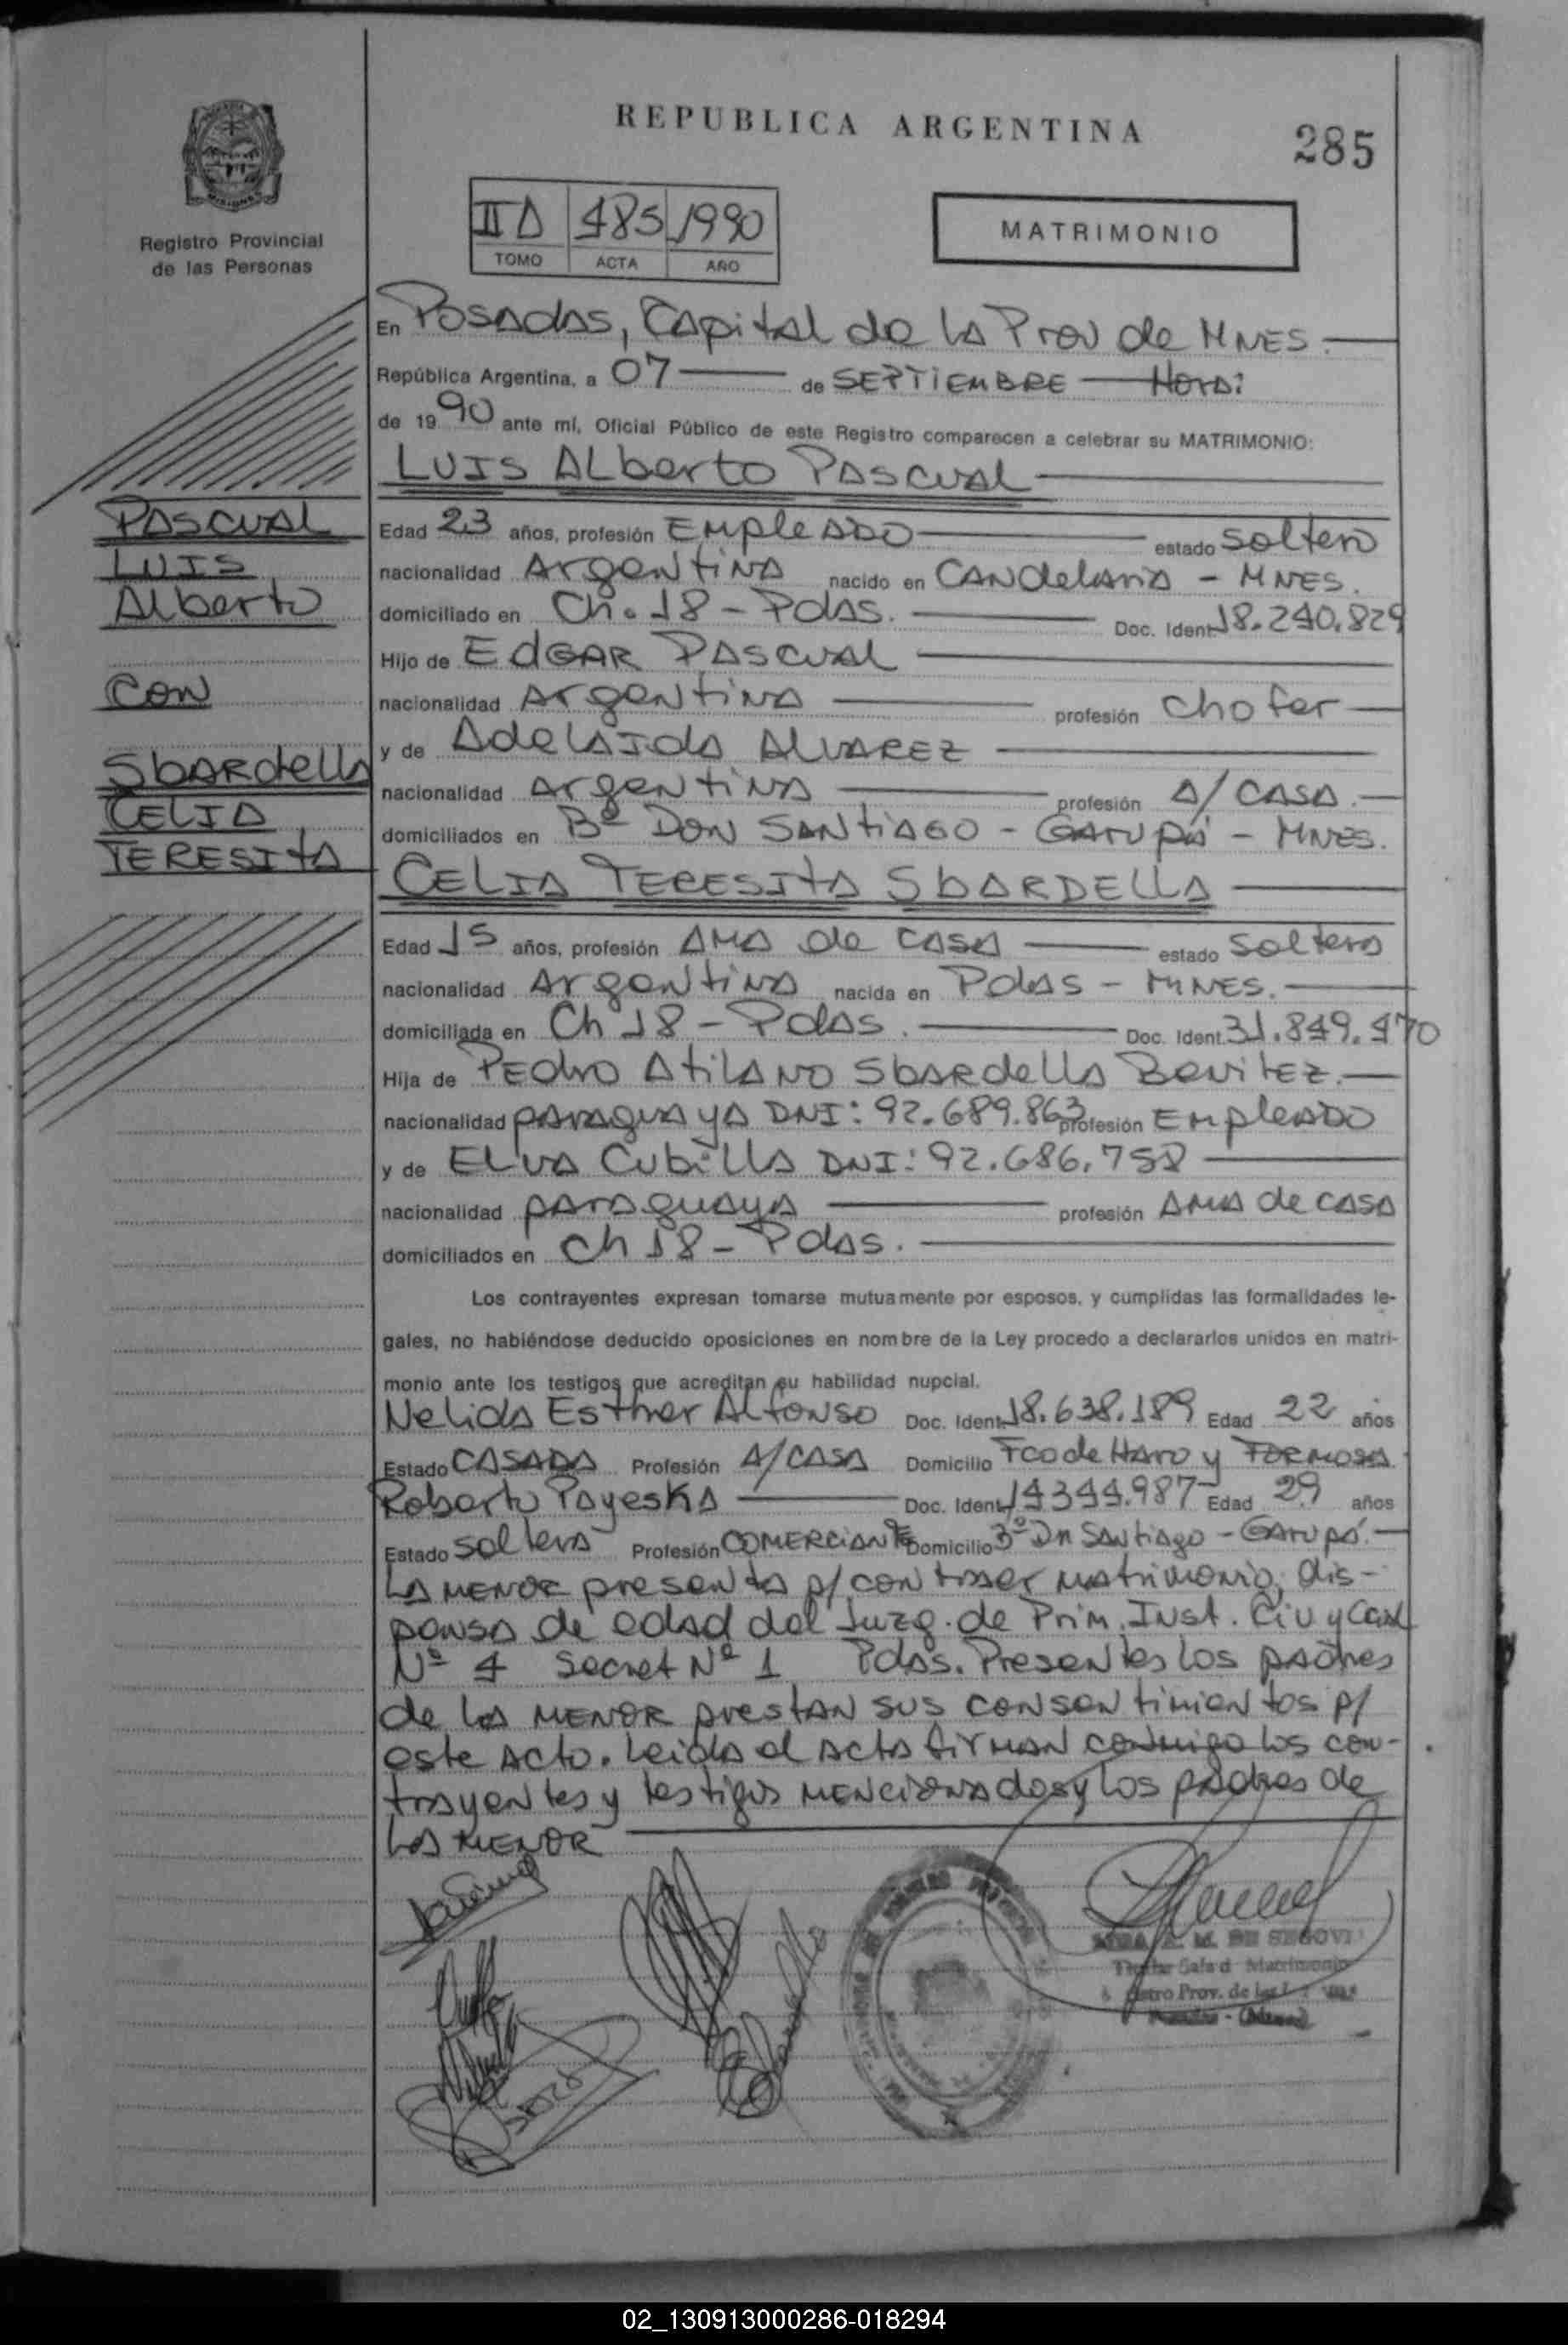 REPUBLICA ARGENTINA
285
Registro Provincial
de las Personas
II A 485 1990
TOMO ACTA AÑO
MATRIMONIO
En Posadas, Capital de la Prov de Mnes.
República Argentina, a 07 de SEPTIEMBRE
de 1990 ante mí, Oficial Público de este Registro comparecen a celebrar su MATRIMONIO:
LUIS ALberto PASCUAL
PASCUAL
LUIS
Alberto
con
Sbardella
CELIA
TERESITA
Edad 23 años, profesión EMPleADO estado soltero
nacionalidad Argentina nacido en CANdelaria - MNES.
domiciliado en Ch. 18 - Pdas. Doc. Ident. 18.240.829
Hijo de EdGAR PASCUAL
nacionalidad Argentina profesión chofer
y de AdelAIda ALVAREZ
nacionalidad Argentina profesión A/ CASA.
domiciliados en Bº DON SANtiAGO - GARUPá - MNES.
CELIA TERESITA SbARDELLA
Edad 15 años, profesión AMA de CASA estado soltera
nacionalidad Argentina nacida en Pdas - MNES.
domiciliada en Ch 18 - Pdas. Doc. Ident. 31.849.470
Hija de PEdro AtilANO SbARdella BenitEz.
nacionalidad paraguaya DNI: 92.689.863 profesión EMpleADO
y de ELVA Cubilla DNI: 92.686.758
nacionalidad paraguaya profesión AMA de CASA
domiciliados en Ch 18 - Pdas.
Los contrayentes expresan tomarse mutuamente por esposos, y cumplidas las formalidades le-
gales, no habiéndose deducido oposiciones en nombre de la Ley procedo a declararlos unidos en matri-
monio ante los testigos que acreditan su habilidad nupcial.
Nelida Esther Alfonso Doc. Ident. 18.638.189 Edad 22 años
Estado CASADA Profesión A/CASA Domicilio Fco de HARO y FORMOSA.
Roberto PAyeska Doc. Ident. 14344.987 Edad 29 años
Estado soltero Profesión COMERCIANTE Domicilio Bº Dn SANtiago - GARUPá.
LA MENOR presenta p/ contraer matrimonio, dis-
pensa de edad del Juzg. de Prim. Inst. Civ y Com
Nº 4 Secret Nº 1 Pdas. Presentes los padres
de la MENOR prestan sus consentimientos p/
este Acto. Leida el Acta firman conmigo los con-
trayentes y testigos mencionados y los padres de
LA MENOR
M. DE SEGOVI
Sala d Matrimonio
Prov. de las
02_130913000286-018294